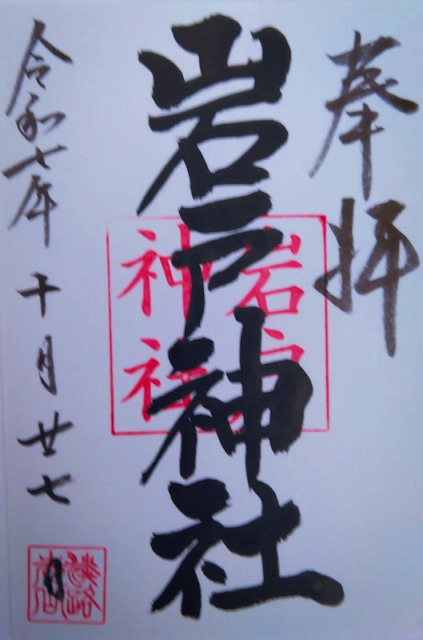 奉拝
岩戸神社
岩戸
神社
令和七年十月廿七